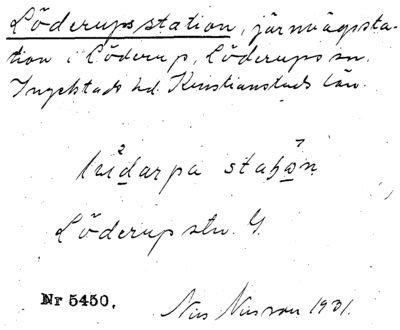 Löderups station, järnvägssta-
tion i Löderup, Löderups sn.
Ingelstads hd. Kristianstads län.
stn. G.
Löderup
Nr 5450.
Nils Nilsson 1931.